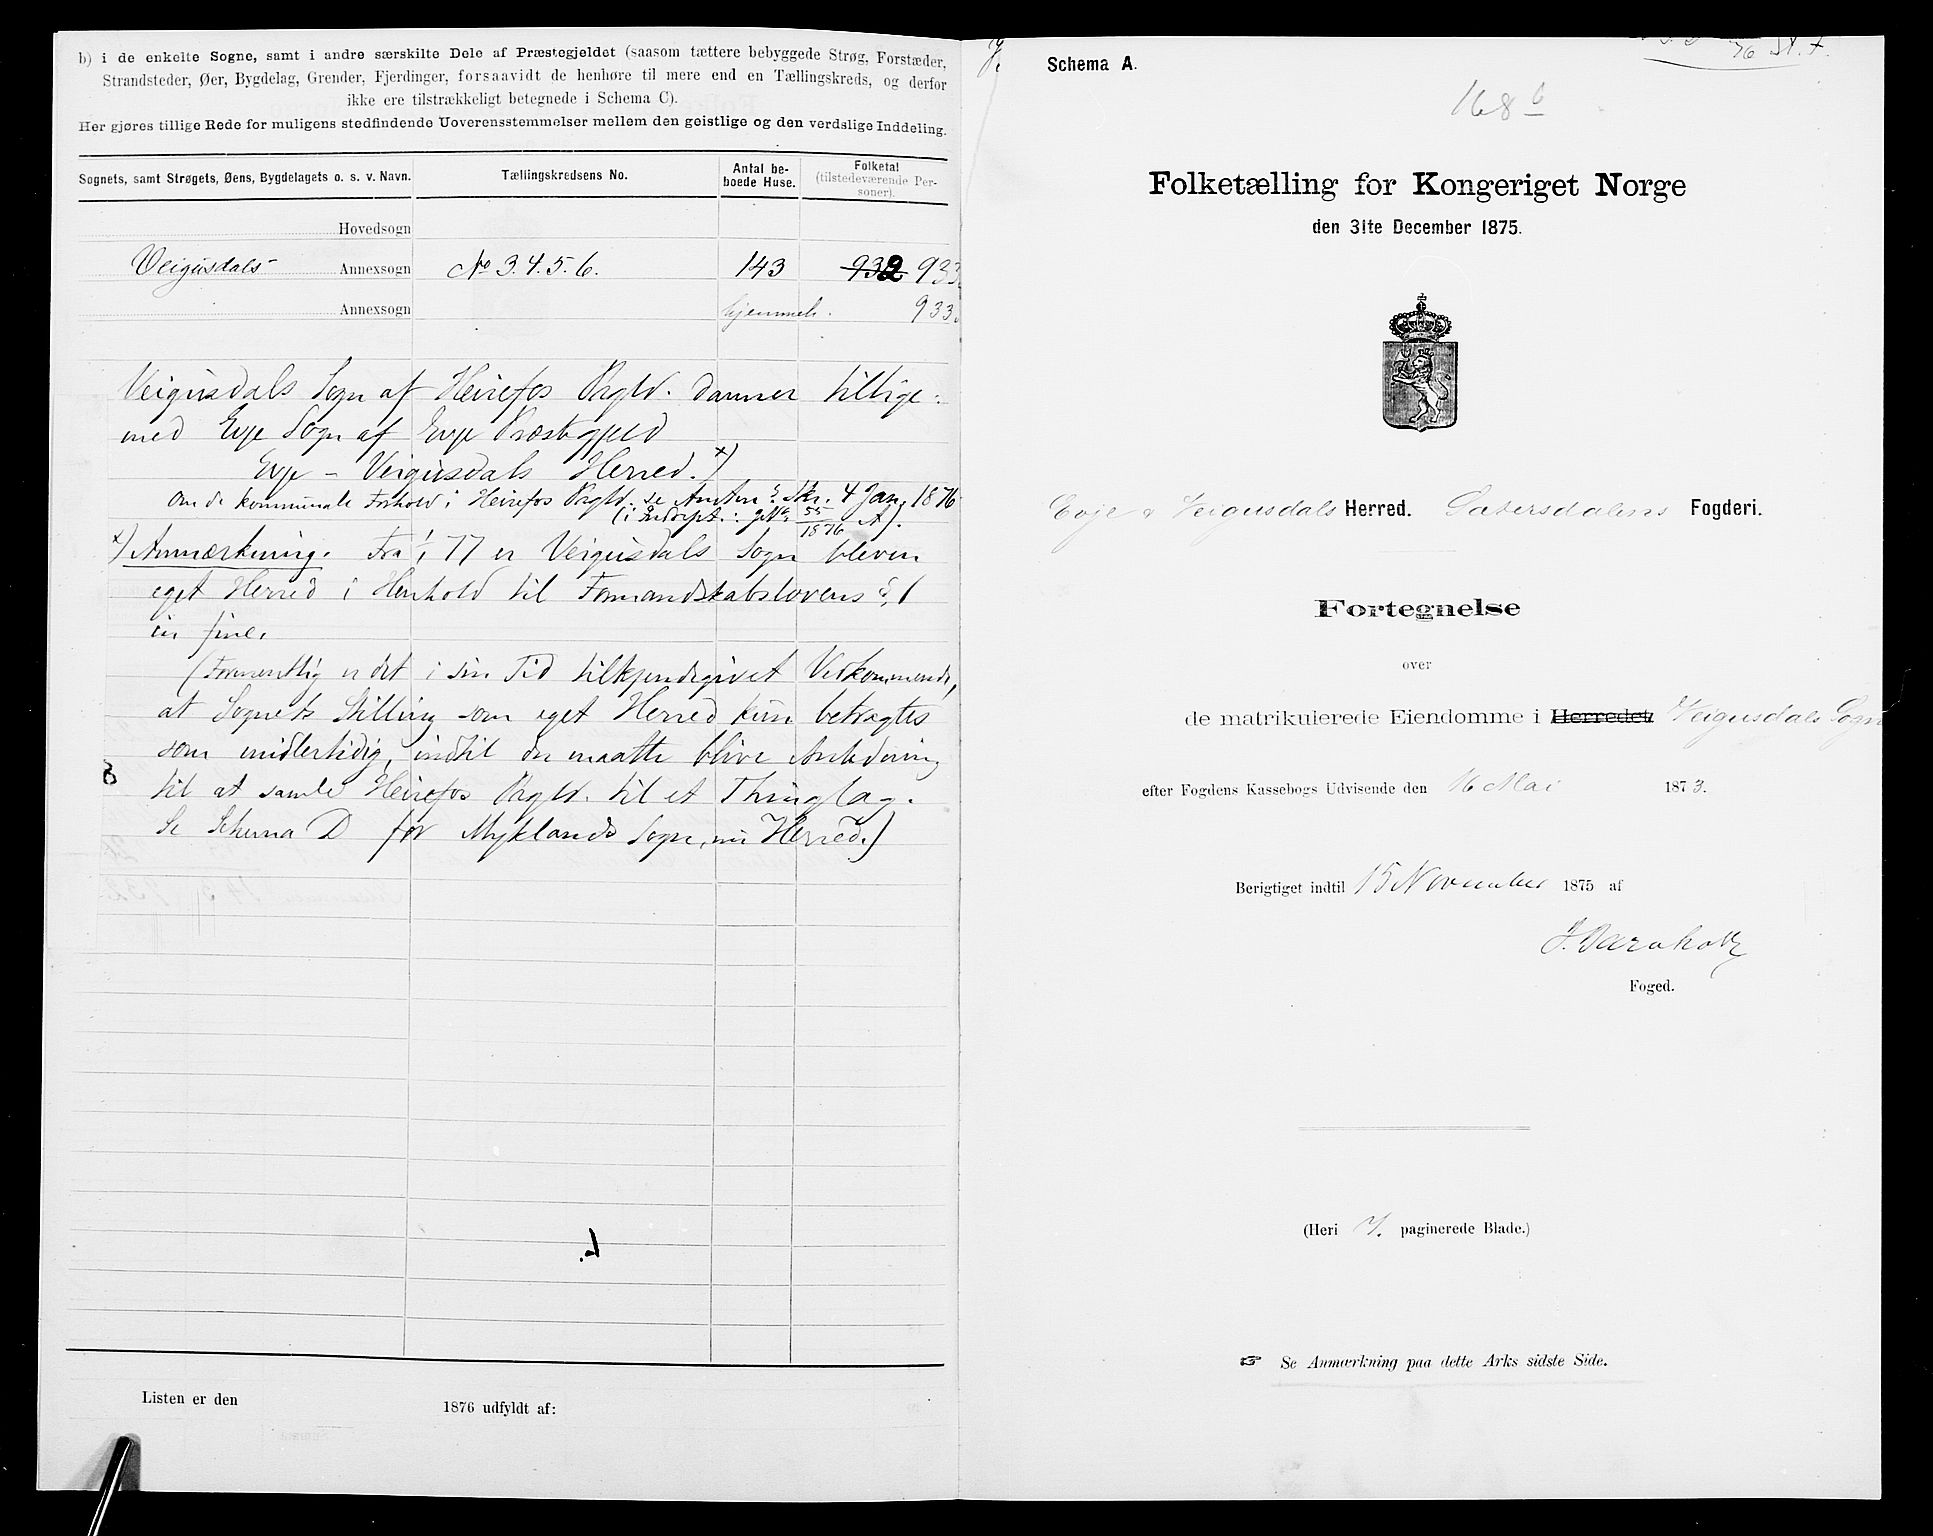 b) i de enkelte Sogne, samt i andre særskilte Dele af Præstegjeldet (saasom tættere bebyggede Strøg, Forstæder,
Strandsteder, Øer, Bygdelag, Grender, Fjerdinger, forsaavidt de henhøre til mere end en Tællingskreds, og derfor
ikke ere tilstrækkeligt betegnede i Schema C).
Her gjøres tillige Rede for muligens stedfindende Uoverensstemmelser mellem den geistlige og den verdslige Inddeling.
Sognets, samt Strøgets, Øens, Bygdelagets o. s. v. Navn. Tællingskredsens No. Antal beboede Huse. Folketal (tilstedeværende Personer).
Hovedsogn
Veigusdals- Annexsogn No 3.4.5.6. 143 932 933
Annexsogn hjemmeh. 933
Veigusdals Sogn af Heirefos Prgld. danner tillige-
med Evje Sogn af Evje Præstegjeld
Evje - Veigusdals Herred. x)
Om de kommunale Forhold i Heirefos Prgld. se Amtm s. Skr. 4 Jan. 1876
55
1876 A).
x) Anmærkning. Fra 1/1 77 er Veigusdals Sogn bleven
eget Herred i Henhold til Formandskabslovens § 1
in fine.
(Formentlig er det i sin Tid tilkjendegivet Vedkommende,
at Sognets Stilling som eget Herred kun betragtes
som midlertidig, indtil der maatte blive Anledning
til at samle Heirefos Prgld. til et Thinglag.
Se Schema D for Myklands Sogn, nu Herred.)
Listen er den 1876 udfyldt af:
Schema A.
168 b
Folketælling for Kongeriget Norge
den 31te December 1875.
Evje & Veigusdals Herred. Sætersdalens Fogderi.
Fortegnelse
over
de matrikulerede Eiendomme i Herredet Veigusdals Sogn
efter Fogdens Kassebogs Udvisende den 16 Mai 1873.
Berigtiget indtil 15 November 1875 af
J. Barnholdt
Foged.
(Heri 7. paginerede Blade.)
☞ Se Anmærkning paa dette Arks sidste Side.